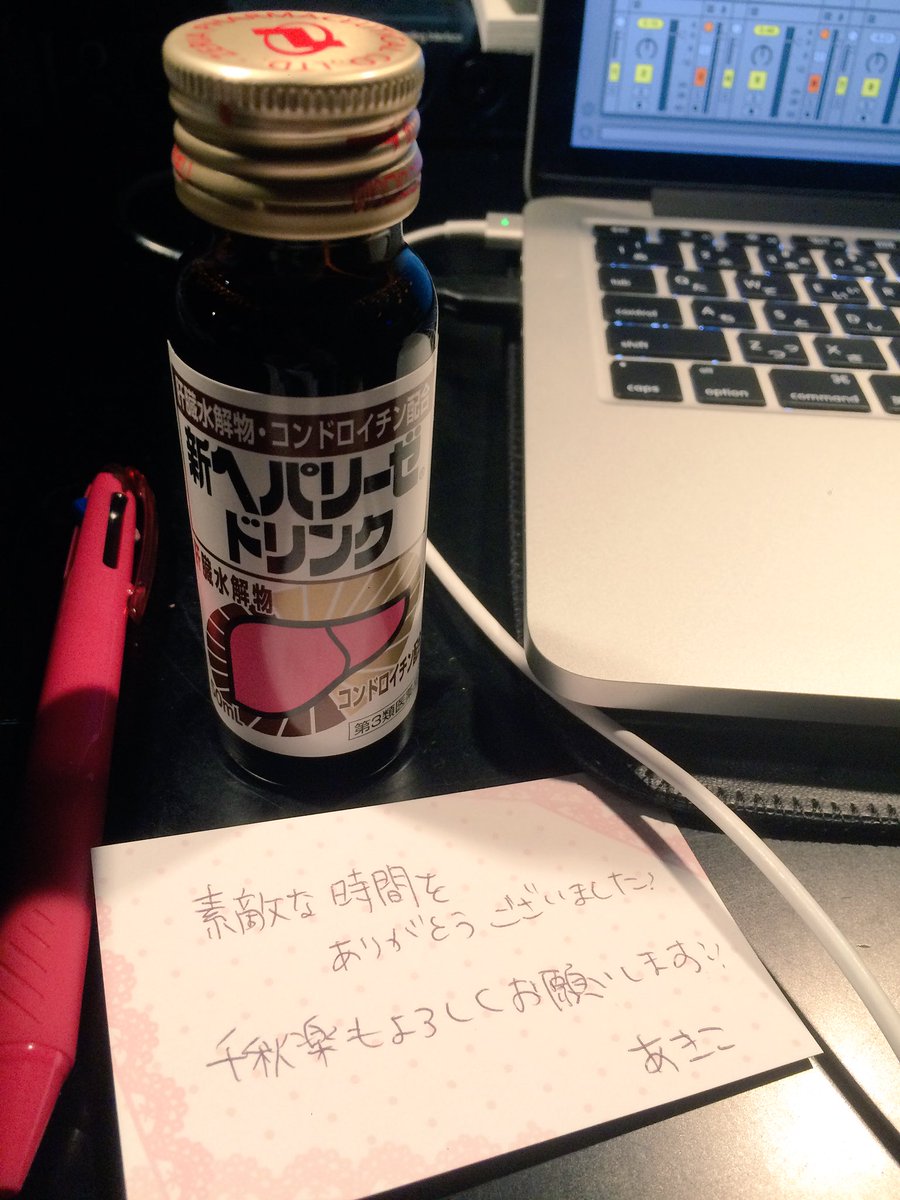 肝臓水解物・コンドロイチン配合
新ヘパリーゼ®
ドリンク
肝臓水解物
コンドロイチン配
50mL
第3類医薬
tab
Q た
W て
E い
R
control
A ち
S と
D し
shift
Z つ
X さ
caps
alt
option
⌘
command
素敵な時間を
ありがとうございました!
千秋楽もよろしくお願いします!!
あきこ